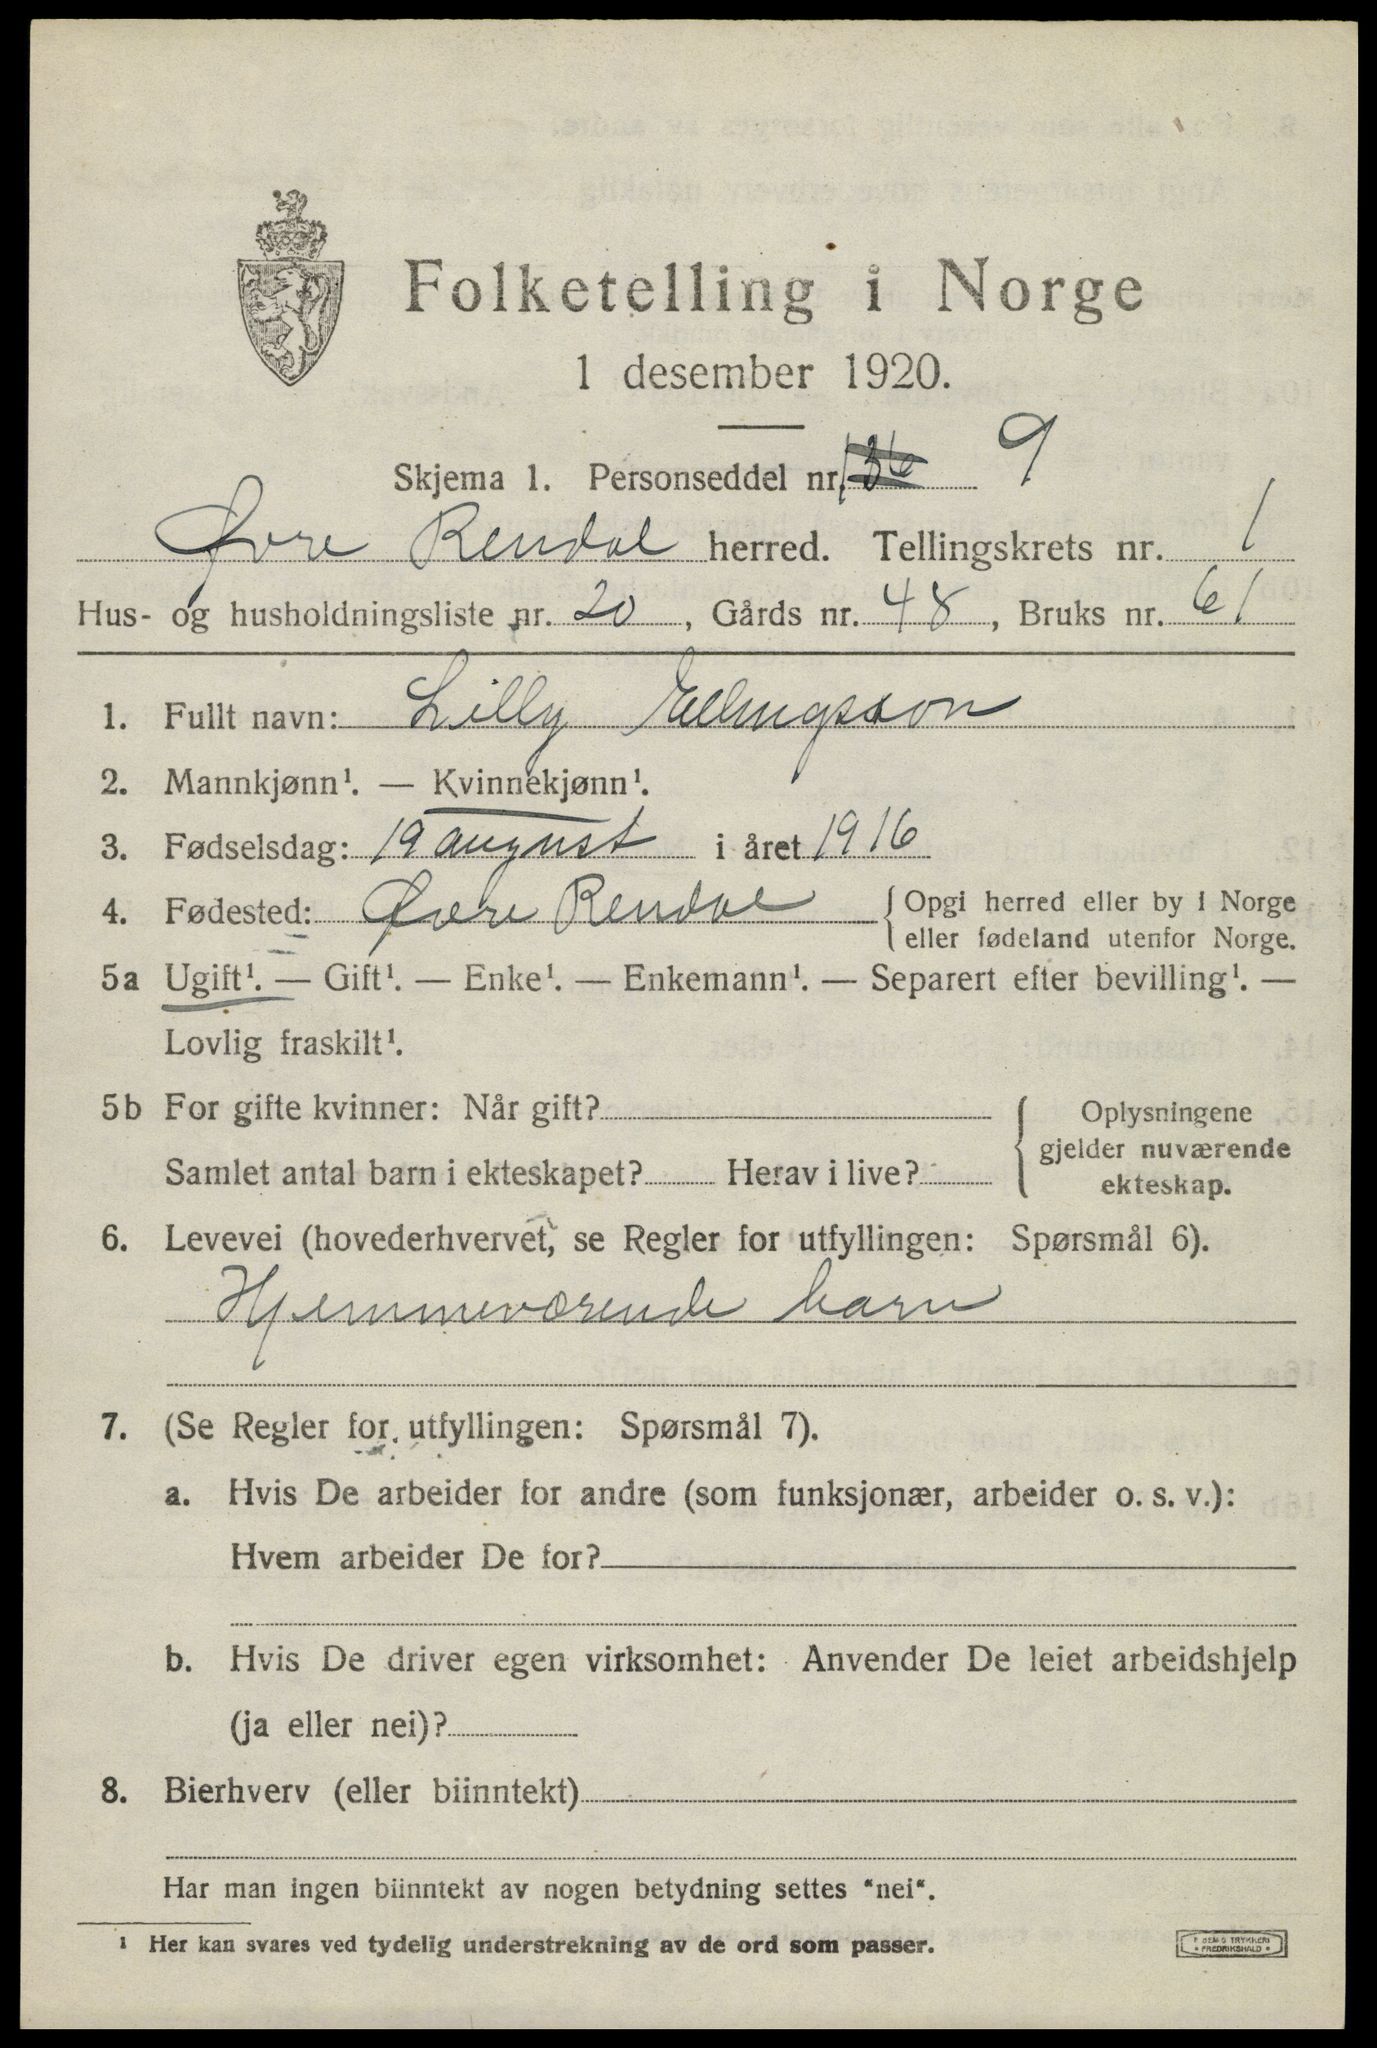 Folketelling i Norge
1 desember 1920.
Skjema 1. Personseddel nr. 136 9
Øvre Rendal herred. Tellingskrets nr. 1
Hus- og husholdningsliste nr. 20, Gårds nr. 48, Bruks nr. 61
1. Fullt navn: Lilly Ellingsson
2. Mannkjønn¹. — Kvinnekjønn¹.
3. Fødselsdag: 19 august i året 1916
4. Fødested: Øvre Rendal { Opgi herred eller by i Norge
eller fødeland utenfor Norge.
5a Ugift¹. — Gift¹. — Enke¹. — Enkemann¹. — Separert efter bevilling¹. —
Lovlig fraskilt¹.
5b For gifte kvinner: Når gift?
Samlet antal barn i ekteskapet? Herav i live?
{ Oplysningene
gjelder nuværende
ekteskap.
6. Levevei (hovederhvervet, se Regler for utfyllingen: Spørsmål 6).
Hjemmeværende barn
7. (Se Regler for utfyllingen: Spørsmål 7).
a. Hvis De arbeider for andre (som funksjonær, arbeider o. s. v.):
Hvem arbeider De for?
b. Hvis De driver egen virksomhet: Anvender De leiet arbeidshjelp
(ja eller nei)?
8. Bierhverv (eller biinntekt)
Har man ingen biinntekt av nogen betydning settes "nei".
¹ Her kan svares ved tydelig understrekning av de ord som passer.
TRYKKERI
FREDRIKSHALD